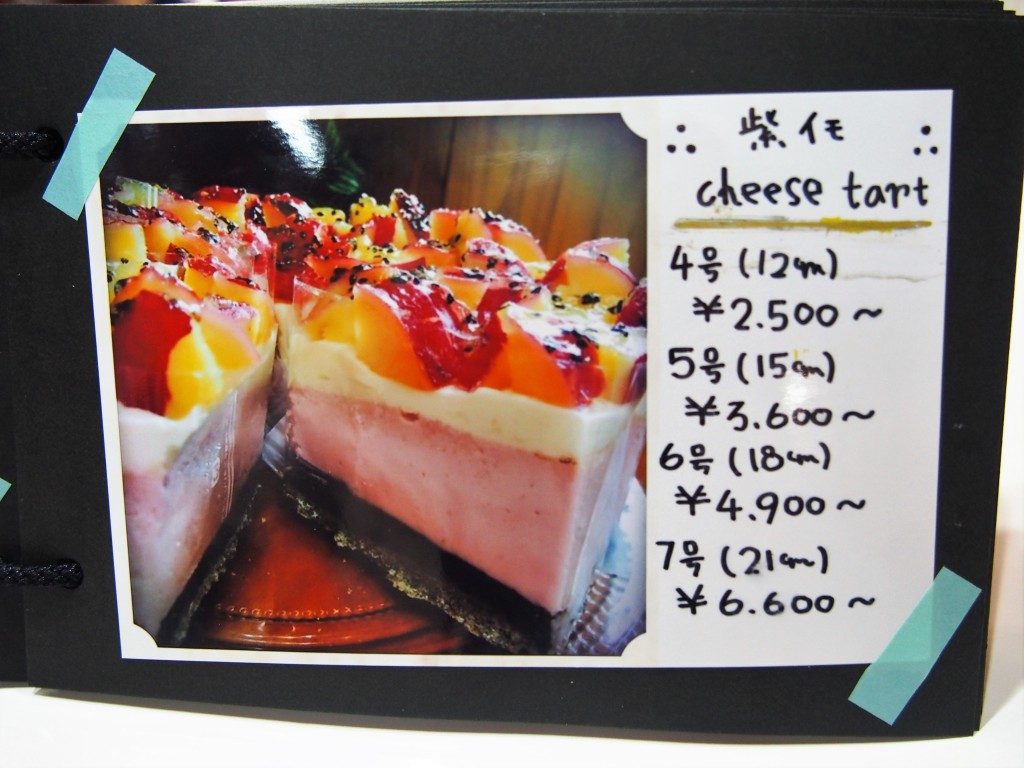 紫イモ
cheese tart
4号(12cm)
¥2.500～
5号(15cm)
¥3.600～
6号(18cm)
¥4.900～
7号(21cm)
¥6.600～